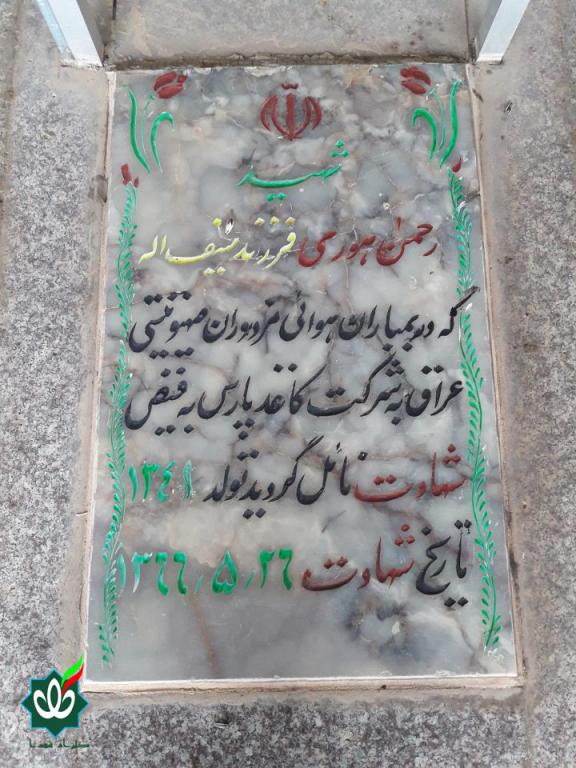 شهید
رحمن هورمی فرزند منیف اله
که در بمباران هوائی مزدوران صهیونیستی
عراق به شرکت کاغذ پارس به فیض
شهادت نائل گردید تولد ۱۳۴۱
تاریخ شهادت ۱۳۶۶٫۵٫۲۶